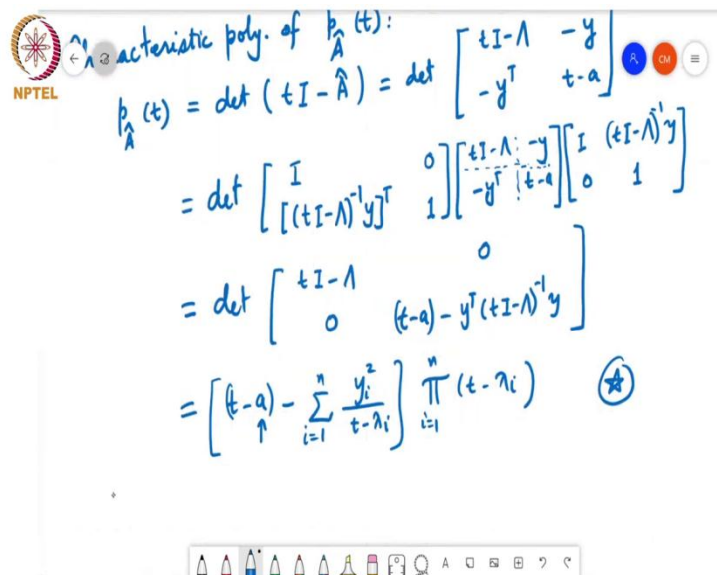 acteristic poly. of p_Â(t):
NPTEL
p_Â(t) = det (tI-Â) = det [ tI-Λ -y ; -yᵀ t-a ]
= det [ I 0 ; [(tI-Λ)⁻¹y]ᵀ 1 ] [ tI-Λ -y ; -yᵀ t-a ] [ I (tI-Λ)⁻¹y ; 0 1 ]
= det [ tI-Λ 0 ; 0 (t-a) - yᵀ(tI-Λ)⁻¹y ]
= [ (t-a) - ∑_{i=1}^{n} y_i²/(t-λ_i) ] ∏_{i=1}^{n} (t-λ_i) ☆
↑
CM
A